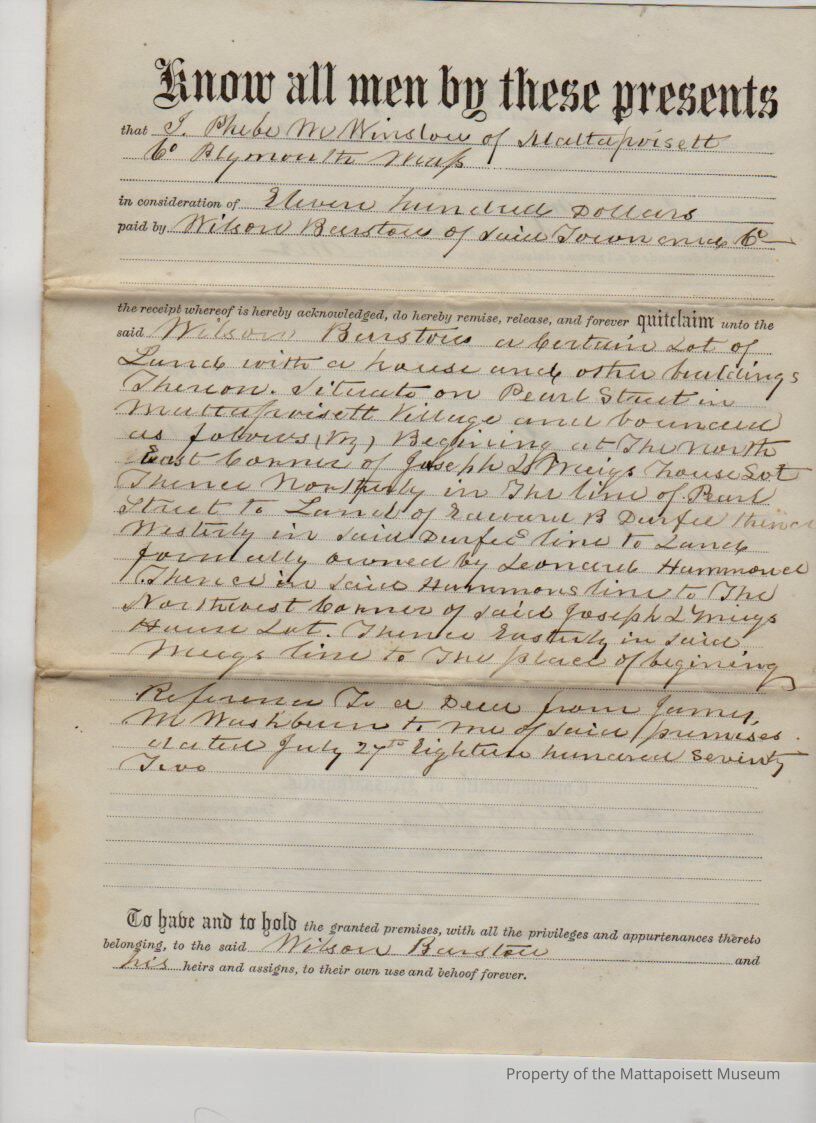 Know all men by these presents
that I. Phebe M Winslow of Mattapoisett
Co Plymouth Mass
in consideration of Eleven hundred Dollars
paid by Wilson Barstow of said Town and Co
the receipt whereof is hereby acknowledged, do hereby remise, release, and forever quitclaim unto the
said Wilson Barstow a Certain Lot of
Land with a house and other buildings
Thereon. Situate on Pearl Street in
Mattapoisett Village and bounded
as follows (Viz) Begining at The North
East Corner of Joseph L Meigs house Lot
Thence Northerly in The line of Pearl
Street to Land of Edward B Durfee thence
Westerly in said Durfee line to Land
formally owned by Leonard Hammond
Thence in said Hammons line to The
Northwest Corner of said Joseph L Meigs
House Lot. Thence Easterly in said
Meigs line to The place of begining
Reference To a Deed from James
M Washburn to me of said premises.
dated July 27th Eighteen hundred Seventy
Two
To have and to hold the granted premises, with all the privileges and appurtenances thereto
belonging, to the said Wilson Barstow and
his heirs and assigns, to their own use and behoof forever.
Property of the Mattapoisett Museum